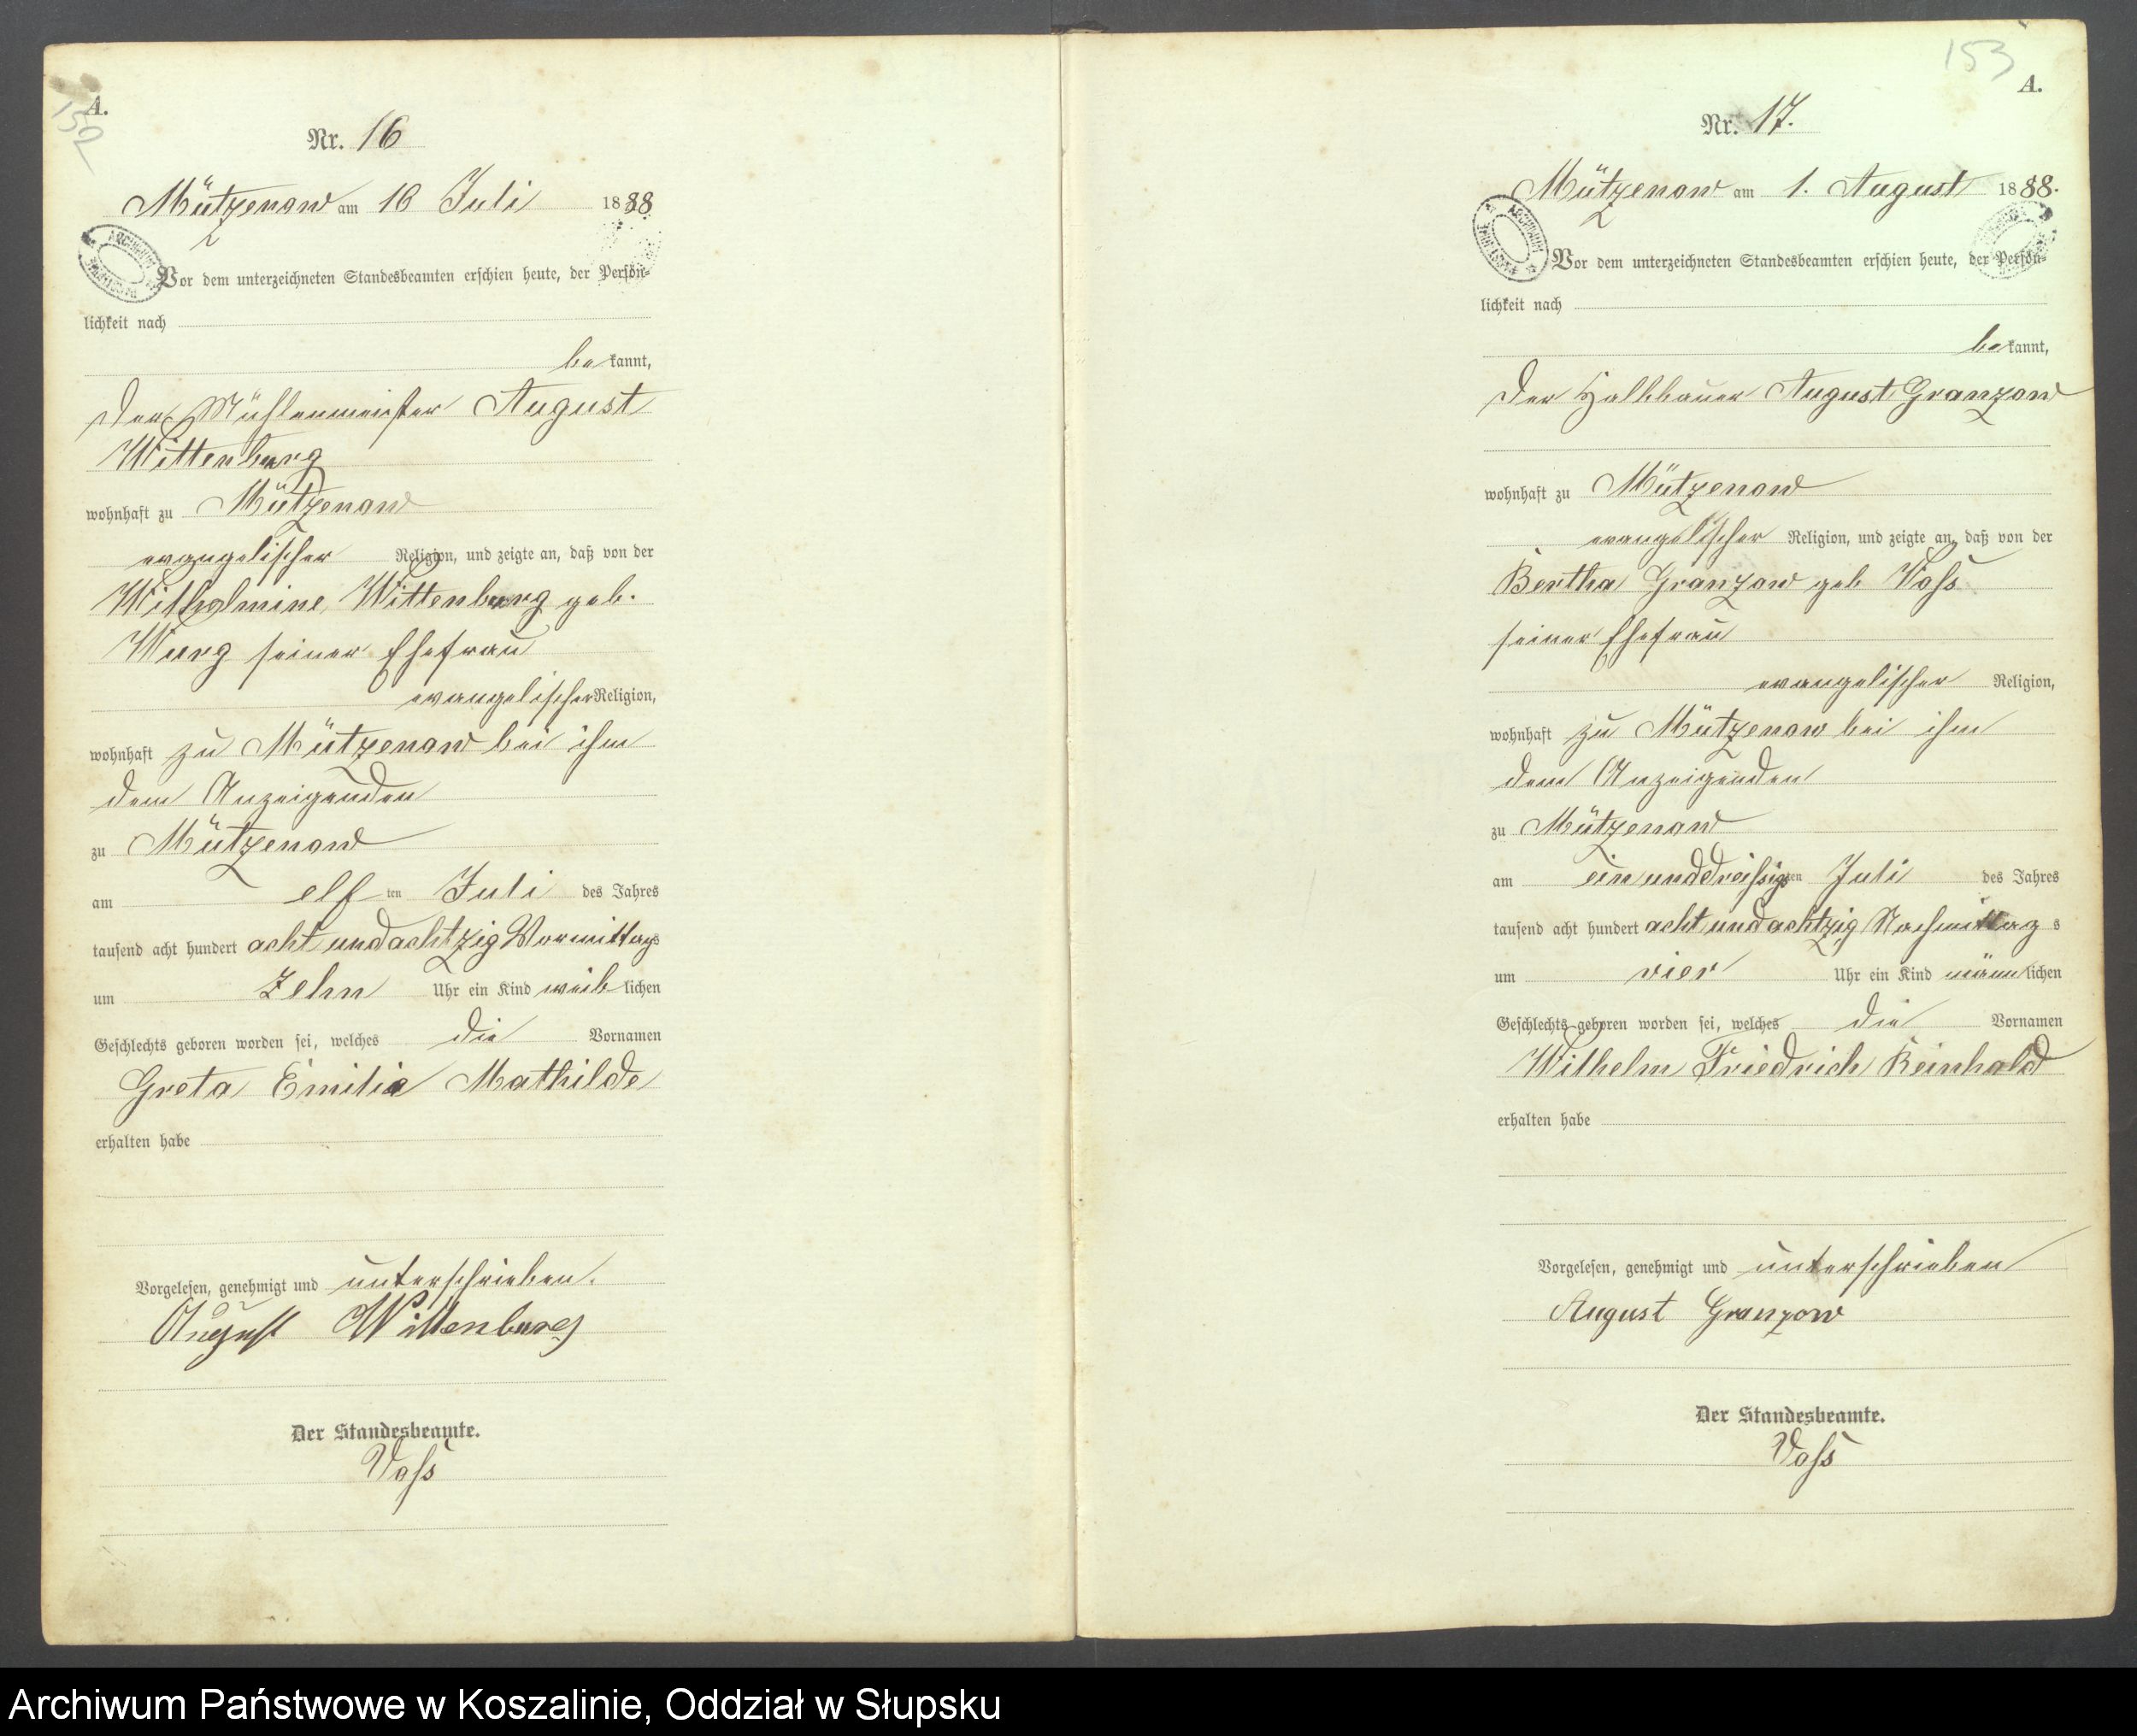 152
A.
Nr. 16
Mützenow am 16 Juli 1888
Vor dem unterzeichneten Standesbeamten erschien heute, der Persön-
lichkeit nach
be kannt,
der Mühlenmeister August
Wittenburg
wohnhaft zu Mützenow
evangelischer Religion, und zeigte an, daß von der
Wilhelmine Wittenburg geb.
Wurg seiner Ehefrau
evangelischer Religion,
wohnhaft zu Mützenow bei ihm
dem Anzeigenden
zu Mützenow
am elf ten Juli des Jahres
tausend acht hundert acht und achtzig Vormittags
um zehn Uhr ein Kind weib lichen
Geschlechts geboren worden sei, welches die Vornamen
Greta Emilie Mathilde
erhalten habe
Vorgelesen, genehmigt und unterschrieben.
August Wittenburg
Der Standesbeamte.
Voss
153
A.
Nr. 17.
Mützenow am 1. August 1888.
Vor dem unterzeichneten Standesbeamten erschien heute, der Persön-
lichkeit nach
be kannt,
der Halbbauer August Granzow
wohnhaft zu Mützenow
evangelischer Religion, und zeigte an, daß von der
Bertha Granzow geb Voss
seiner Ehefrau
evangelischer Religion,
wohnhaft zu Mützenow bei ihm
dem Anzeigenden
zu Mützenow
am ein und dreissigsten Juli des Jahres
tausend acht hundert acht und achtzig Nachmittag s
um vier Uhr ein Kind männ lichen
Geschlechts geboren worden sei, welches die Vornamen
Wilhelm Friedrich Reinhold
erhalten habe
Vorgelesen, genehmigt und unterschrieben
August Granzow
Der Standesbeamte.
Voss
Archiwum Państwowe w Koszalinie, Oddział w Słupsku